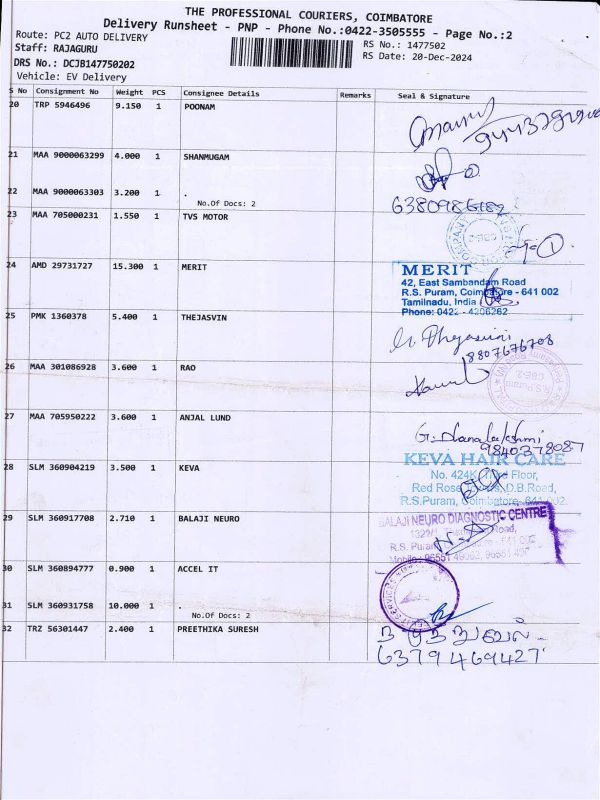 THE PROFESSIONAL COURIERS, COIMBATORE
Delivery Runsheet - PNP - Phone No.:0422-3505555 - Page No.:2
Route: PC2 AUTO DELIVERY
RS No.: 1477502
Staff: RAJAGURU
RS Date: 20-Dec-2024
DRS No.: DCJB147750202
Vehicle: EV Delivery
S No Consignment No Weight PCS Consignee Details Remarks Seal & Signature
20 TRP 5946496 9.150 1 POONAM
21 MAA 9000063299 4.000 1 SHANMUGAM
22 MAA 9000063303 3.200 1 .
No.Of Docs: 2
6380986182
23 MAA 705000231 1.550 1 TVS MOTOR
24 AMD 29731727 15.300 1 MERIT
MERIT
42, East Sambandam Road
R.S. Puram, Coimbatore - 641 002
Tamilnadu, India
Phone: 0422 - 4206262
25 PMK 1360378 5.400 1 THEJASVIN
8807676708
26 MAA 301086928 3.600 1 RAO
27 MAA 705950222 3.600 1 ANJAL LUND
G. Dhanalakshmi
9840378087
28 SLM 360904219 3.500 1 KEVA
KEVA HAIR CARE
No. 424K, Third Floor,
Red Rose D.B.Road,
R.S.Puram, Coimbatore-641 002.
29 SLM 360917708 2.710 1 BALAJI NEURO
BALAJI NEURO DIAGNOSTIC CENTRE
Road,
R.S. Puram
Mobile
30 SLM 360894777 0.900 1 ACCEL IT
31 SLM 360931758 10.000 1 .
No.Of Docs: 2
32 TRZ 56301447 2.400 1 PREETHIKA SURESH
6379469427